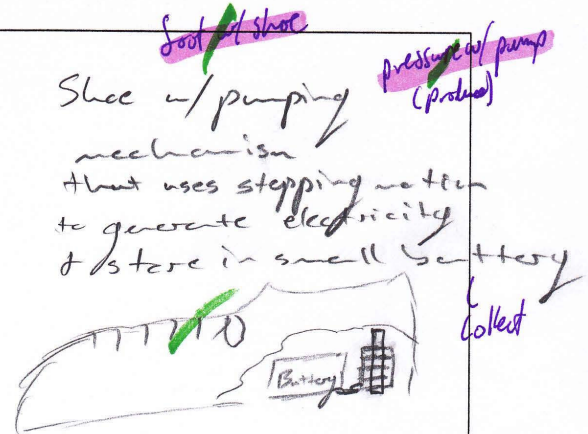 foot w/ shoe
pressure w/ pump
(produce)
Shoe w/ pumping
mechanism
that uses stepping motion
to generate electricity
& store in small battery
Collect
Battery